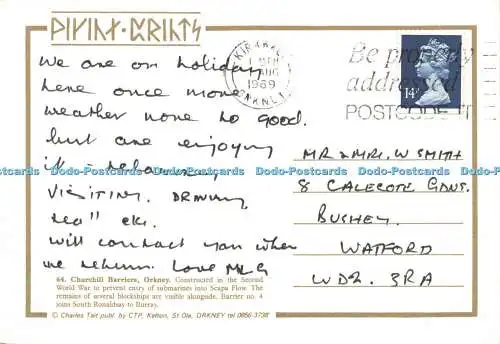 ᚹᛁᚴᛁᚾᚷ·ᛈᚱᛁᚾᛏᛋ
We are on holiday
here once more
weather none to good.
but are enjoying
it
visiting. Drawing
tea" etc.
will contact you when
we return. Love
KIRKWALL
AUG
1989
ORKNEY
Be properly
addressed
POSTCODE IT
14P
MR & MRS. W SMITH
8 CALECOTE GDNS.
BUSHEY
WATFORD
WD2. 3RA
64. Churchill Barriers, Orkney. Constructed in the Second
World War to prevent entry of submarines into Scapa Flow. The
remains of several blockships are visible alongside. Barrier no. 4
joins South Ronaldsay to Burray.
© Charles Tait publ. by CTP, Kelton, St Ola, ORKNEY tel 0856-3738
Dodo-Postcards Dodo-Postcards Dodo-Postcards Dodo-Postcards Dodo-Postcards